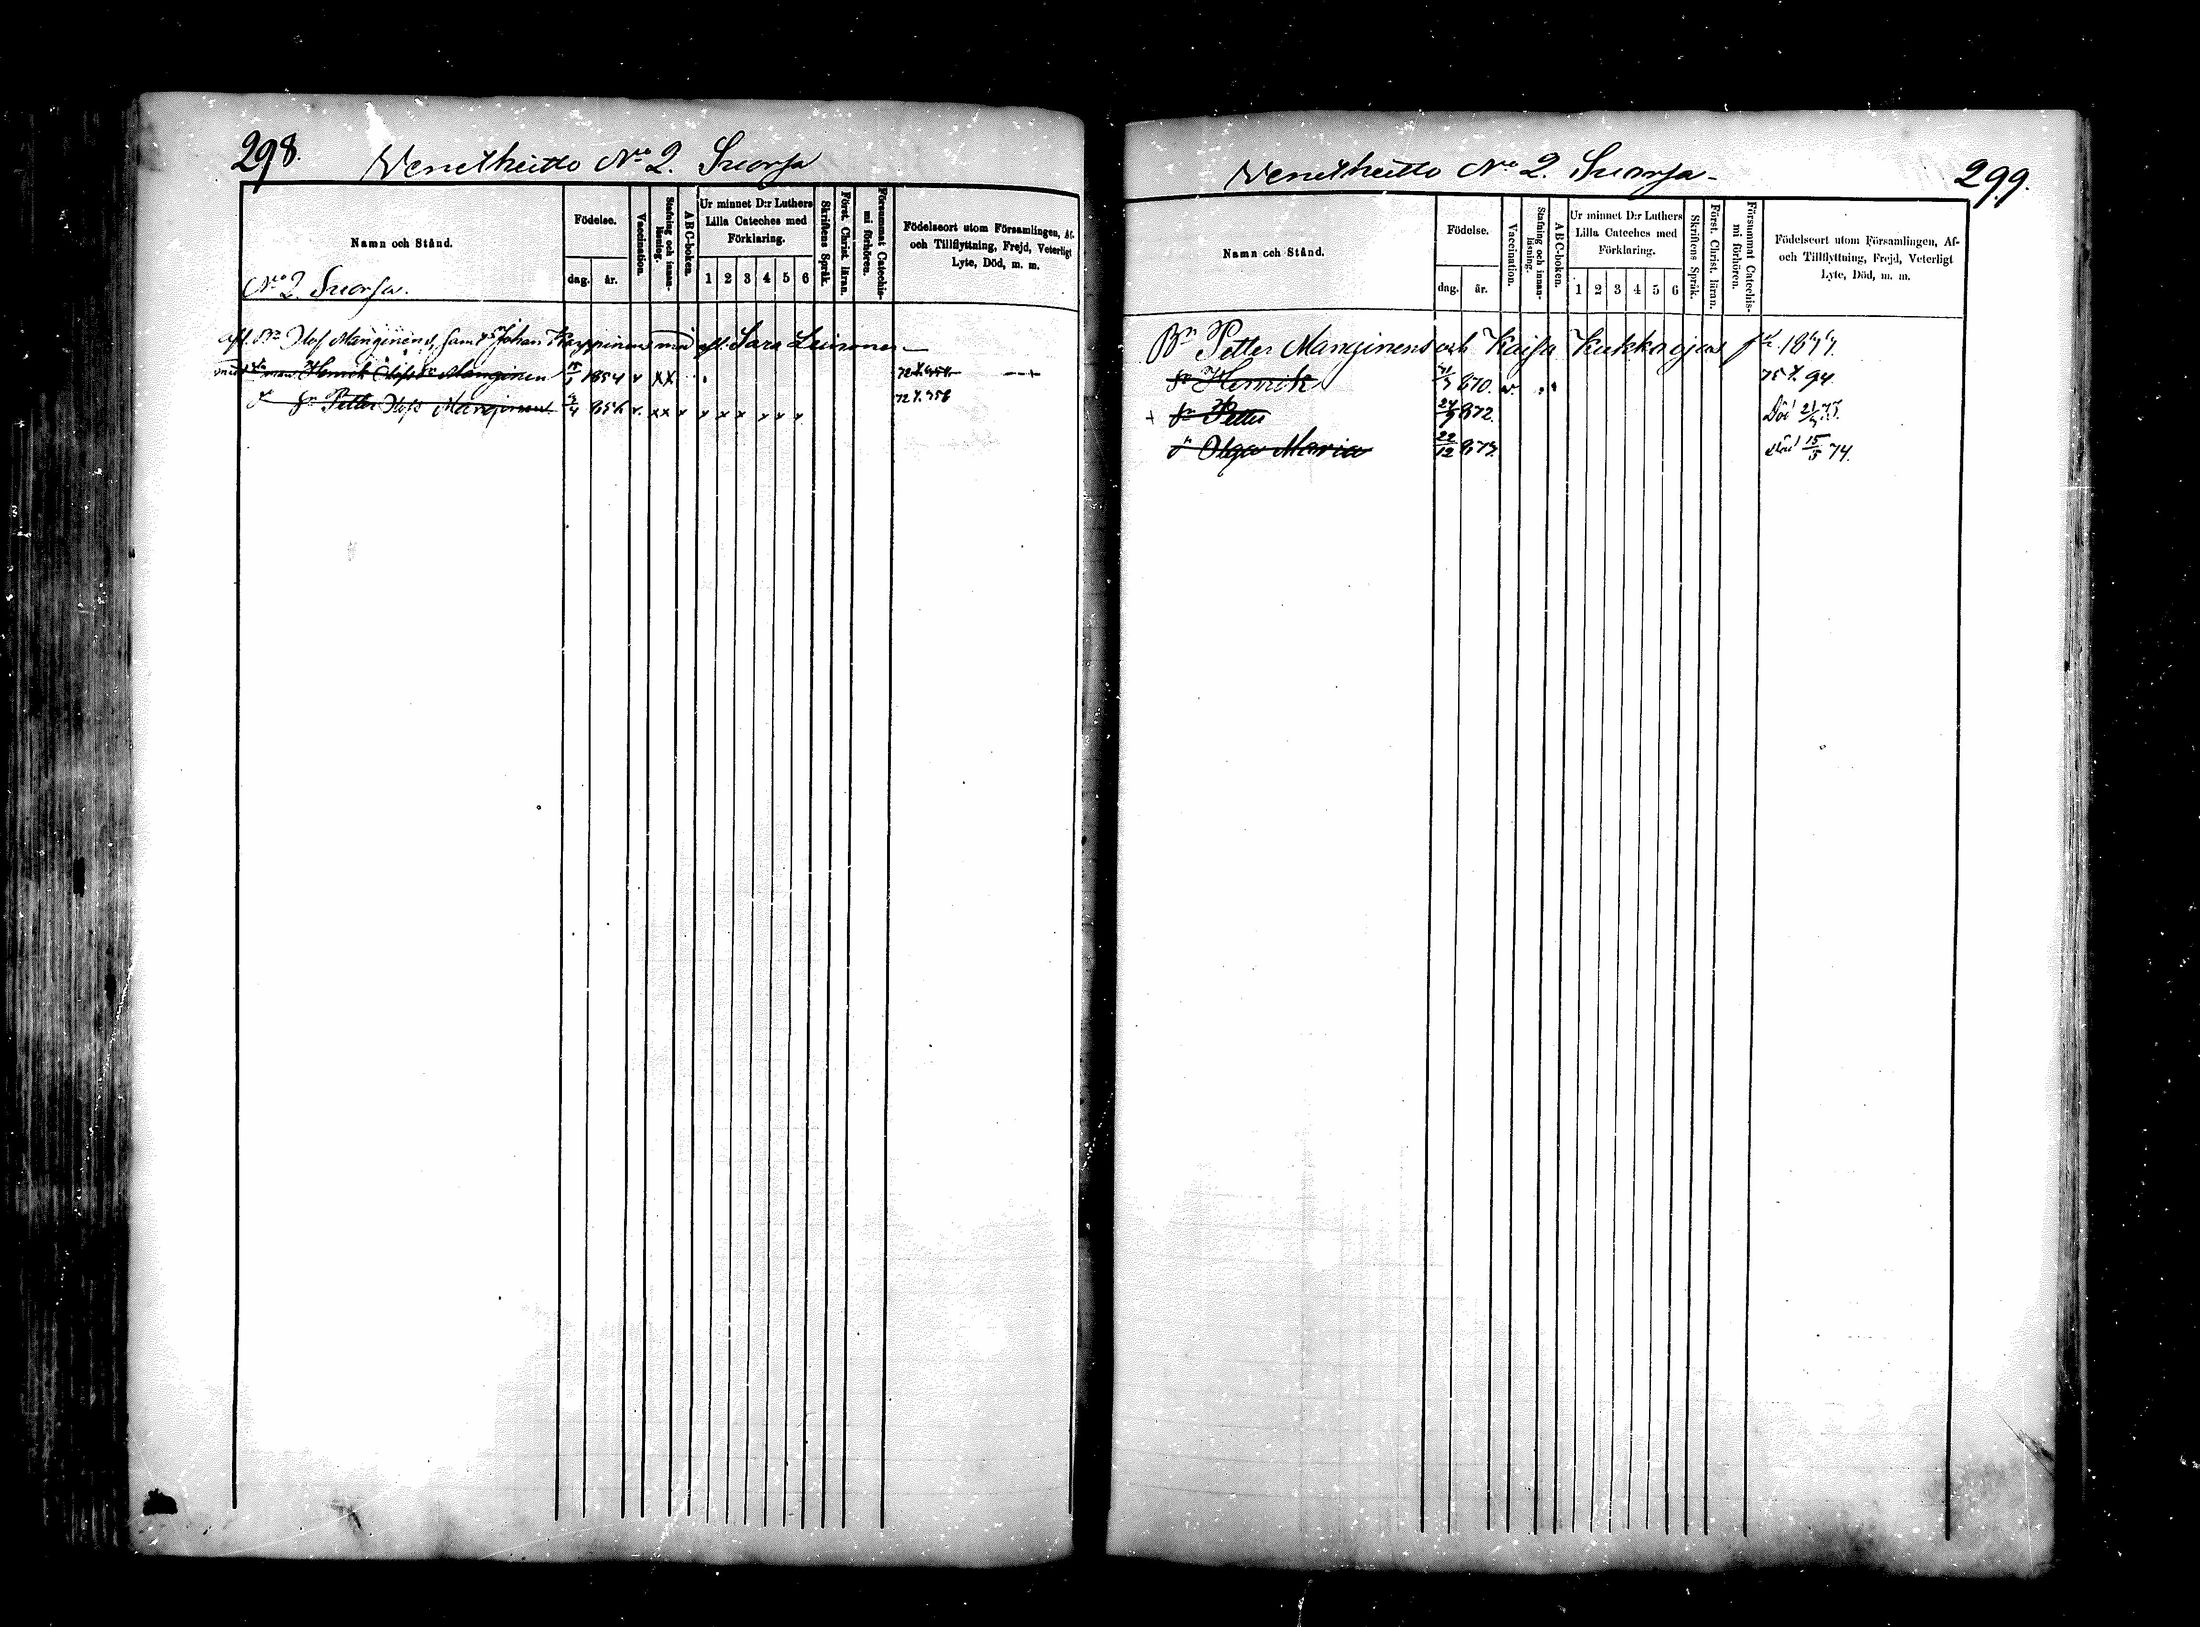 298.
Venetheitto No 2. Suorsa
Namn och Stånd.
Födelse.
dag.
år.
Vaccination.
Stafning och innanläsning.
ABC-boken.
Ur minnet D:r Luthers
Lilla Cateches med
Förklaring.
1 2 3 4 5 6
Skriftens Språk.
Först. Christ. läran.
Försummat Catechismi förhören.
Födelseort utom Församlingen, Af-
och Tillflyttning, Frejd, Veterligt
Lyte, Död, m. m.
No 2. Suorsa.
afl. Bn Olof Manginens, samt Johan Karppinens med afl. Sara Leinonen
Henrik Olofs Sn Manginen 1854 v xx
Sn Petter Olofs Manginen 856 v. xx v v v v v v v
299.
Venetheitto No 2. Suorsa
Namn och Stånd.
Födelse.
dag.
år.
Vaccination.
Stafning och innanläsning.
ABC-boken.
Ur minnet D:r Luthers
Lilla Cateches med
Förklaring.
1 2 3 4 5 6
Skriftens Språk.
Först. Christ. läran.
Försummat Catechismi förhören.
Födelseort utom Församlingen, Af-
och Tillflyttning, Frejd, Veterligt
Lyte, Död, m. m.
Bn Petter Manginens och Kaisa Kukkagens
Sn Henrik 870. v. 94.
+ Sn Petter 24/9 872. Död
Olga Maria 22/12 873 död 15/5 74.